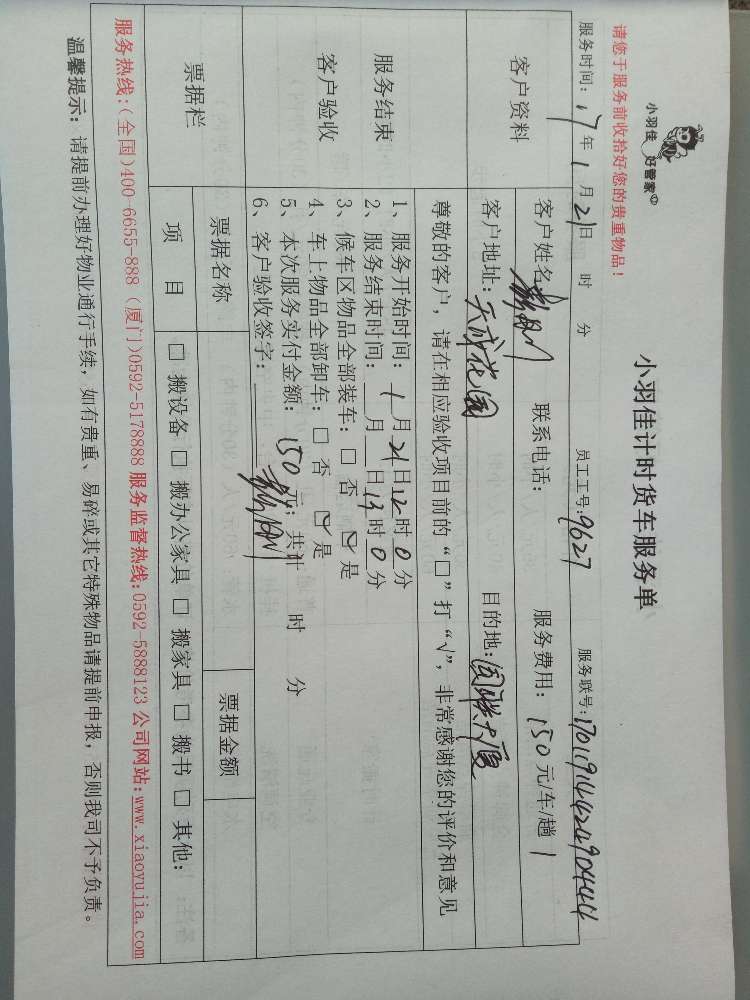 小羽佳 好管家
小羽佳计时货车服务单
请您于服务前收拾好您的贵重物品！
服务时间: 17年 1 月 21日 时 分 员工工号: 9627 服务联号:
客户资料 客户姓名: 联系电话: 服务费用: 150 元/车/趟 1
客户地址: 天成花园 目的地: 国联大厦
服务结束
客户验收
尊敬的客户，请在相应验收项目前的“□”打“√”，非常感谢您的评价和意见
1、服务开始时间: 1 月 21 日 12 时 0 分
2、服务结束时间: 月 日 13 时 0 分
3、候车区物品全部装车: □ 否 ☑ 是
4、车上物品全部卸车: □ 否 ☑ 是
5、本次服务实付金额: 150 元; 共计 时 分
6、客户验收签字:
票据栏 票据名称 票据金额
项 目 □ 搬设备 □ 搬办公家具 □ 搬家具 □ 搬书 □ 其他:
服务热线:(全国)400-6655-888 (厦门)0592-5178888 服务监督热线:0592-5888123 公司网站:www.xiaoyujia.com
温馨提示: 请提前办理好物业通行手续，如有贵重、易碎或其它特殊物品请提前申报，否则我司不予负责。